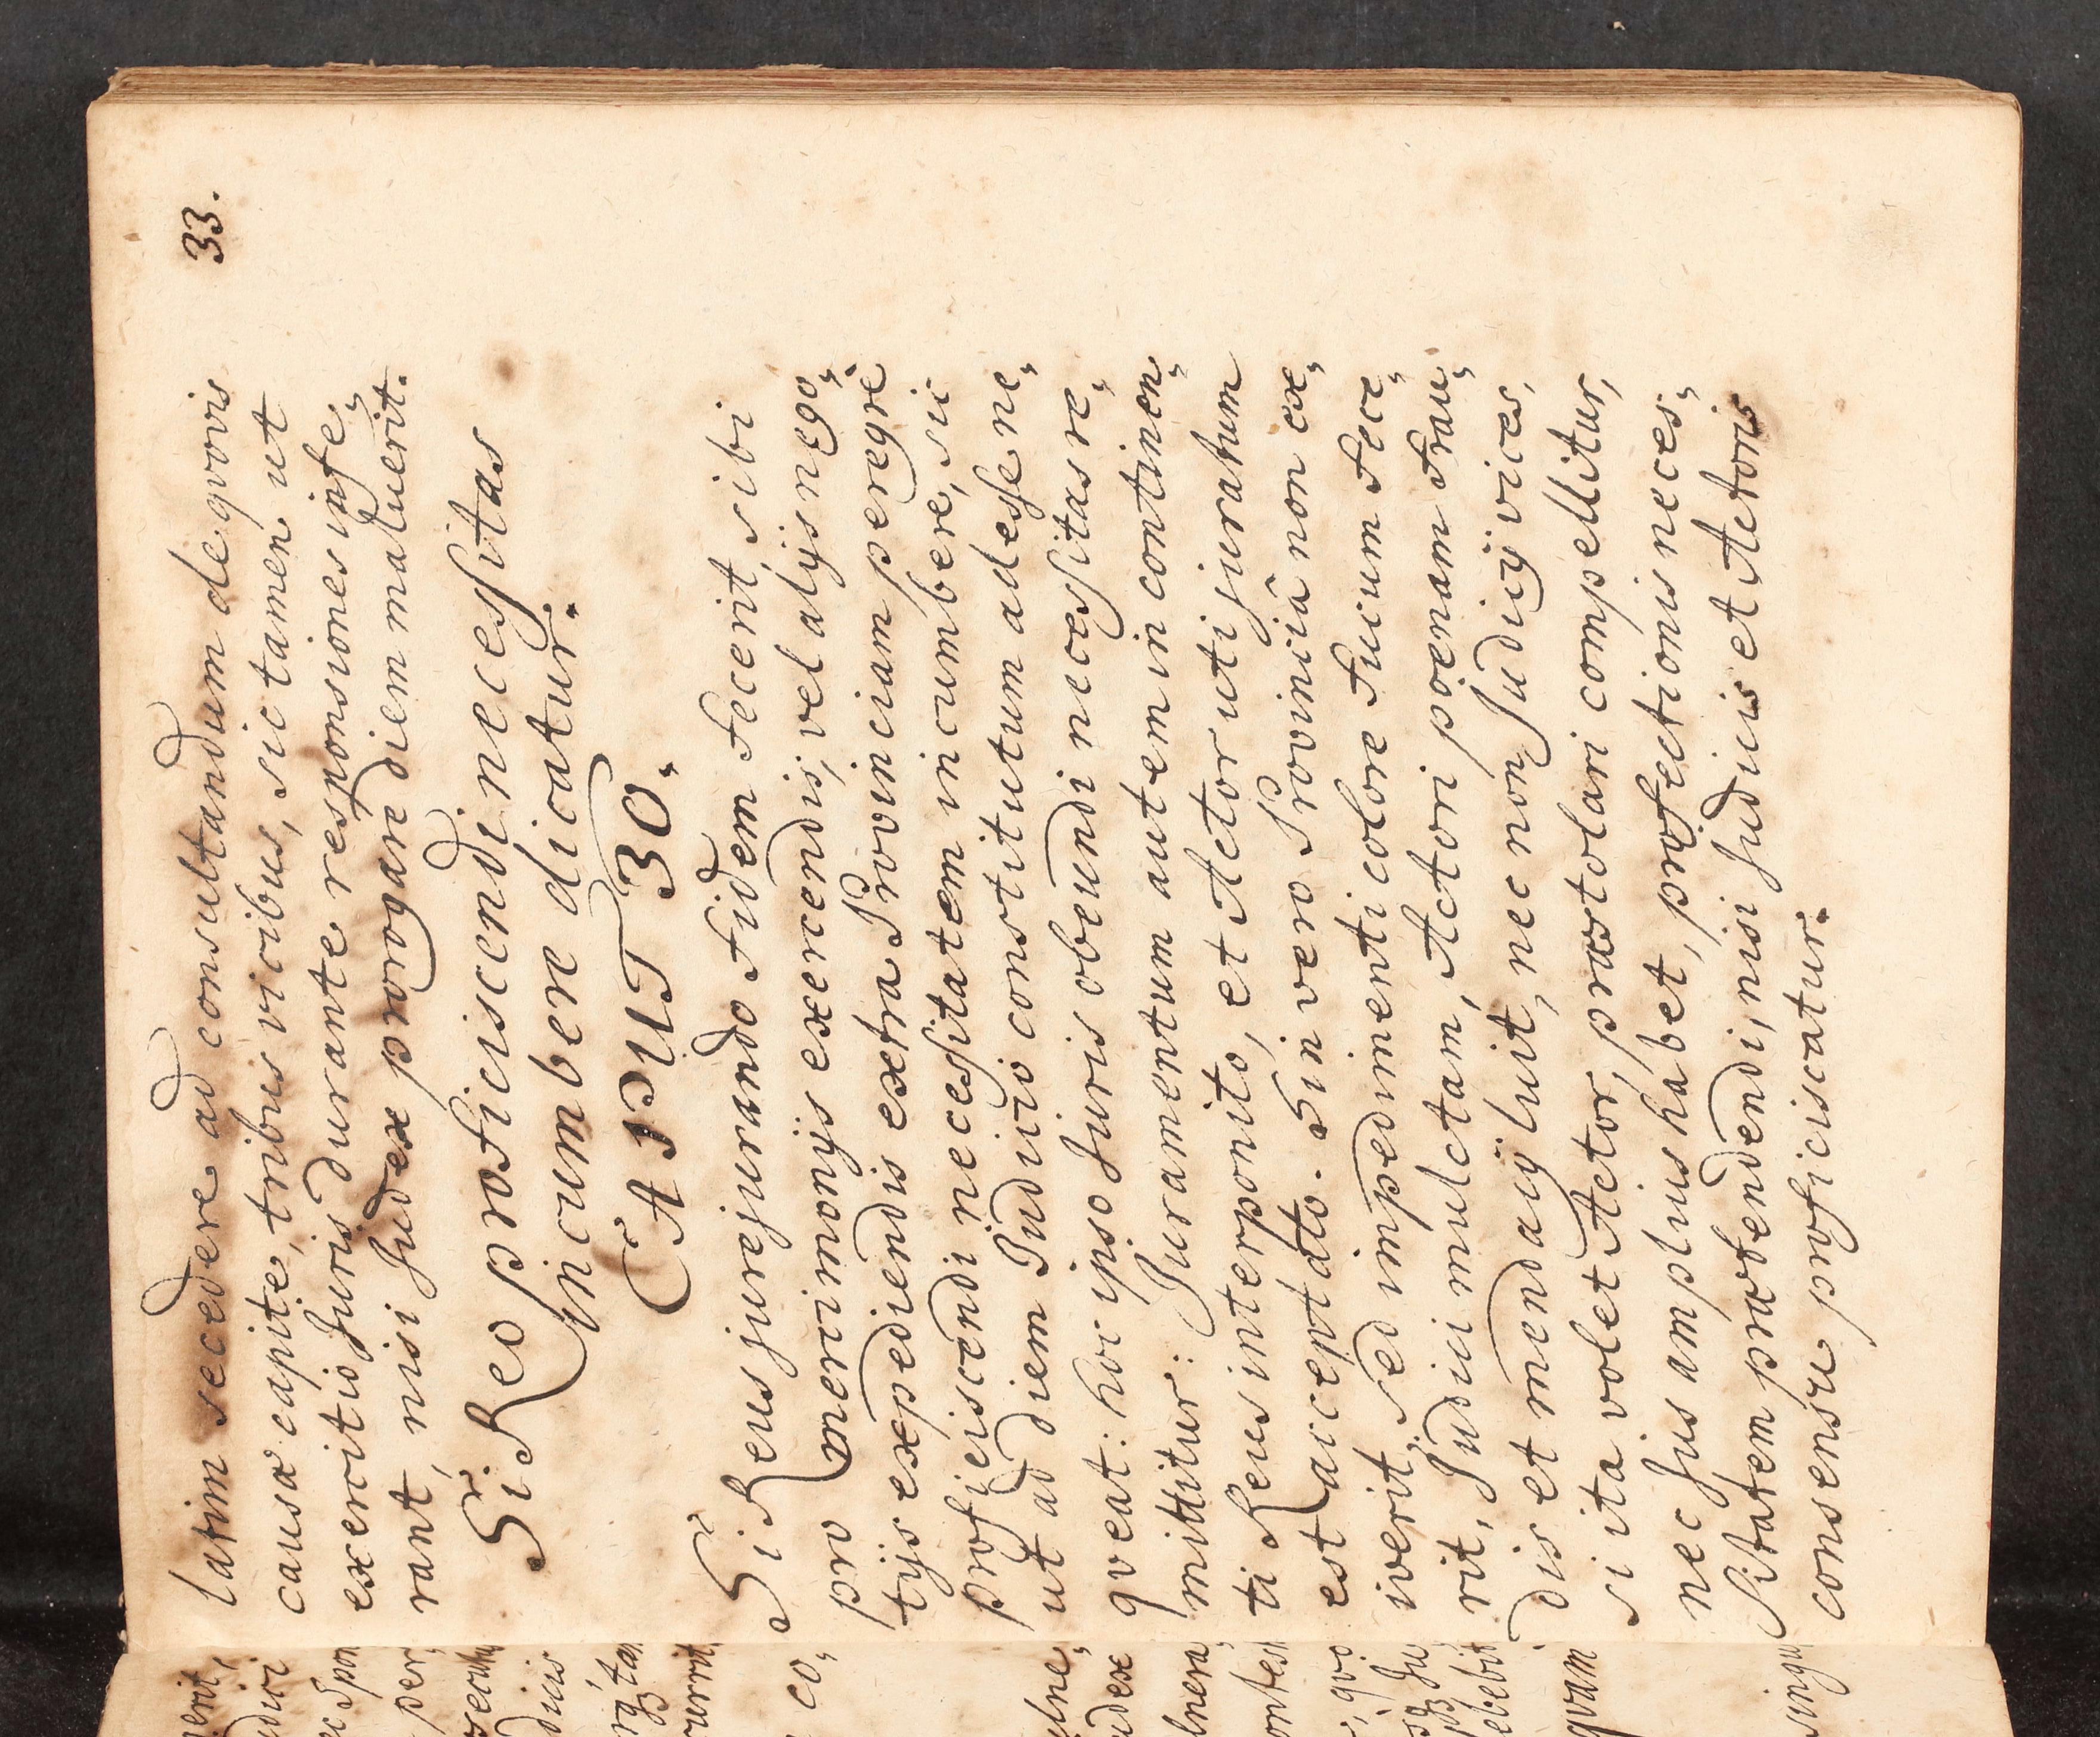 33.
latim secedere ad consultandum de qvovis
causæ capite, tribus vicibus, sic tamen ut
exercitio Juris durante responsiones infe„
rant, nisi Judex prorogare diem maluerit.
Si Reo proficiscendi necessitas
incumbere dicatur.
CAPUT 30.
Si Reus jurejurando fidem fecerit, sibi
pro mercimonijs exercendis, vel alijs nego„
tijs expediendis extra Provinciam peregre
proficiscendi necessitatem incumbere, sic
ut ad diem Judicio constitutum adesse ne„
qveat: hoc ipso Juris obeundi necessitas re„
mittitur: Juramentum autem in continen„
ti Reus interponito, et Actor uti juratum
est acceptato. Sin vero Provinciâ non ex„
iverit, sed impedimenti colore fucum fece„
rit, Judici mulctam, Actori poenam frau„
dis et mendacij luit, nec non Judicij vices,
si ita volet Actor, præstolari compellitur,
nec Jus amplius habet, profectionis neces„
sitatem præbendi, nisi Judicis et Actoris
consensu proficiscatur.